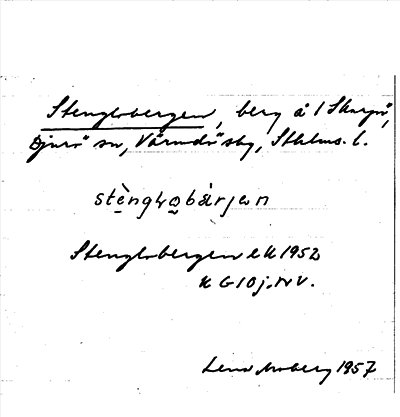 Stenglobergen, berg å 1 Skarpö,
Djurö sn, Värmdö sbg, Sthlms. l.
stènglobàrjan
Stenglobergen ek 1952
k G 10 j. NV.
Lena Moberg 1957